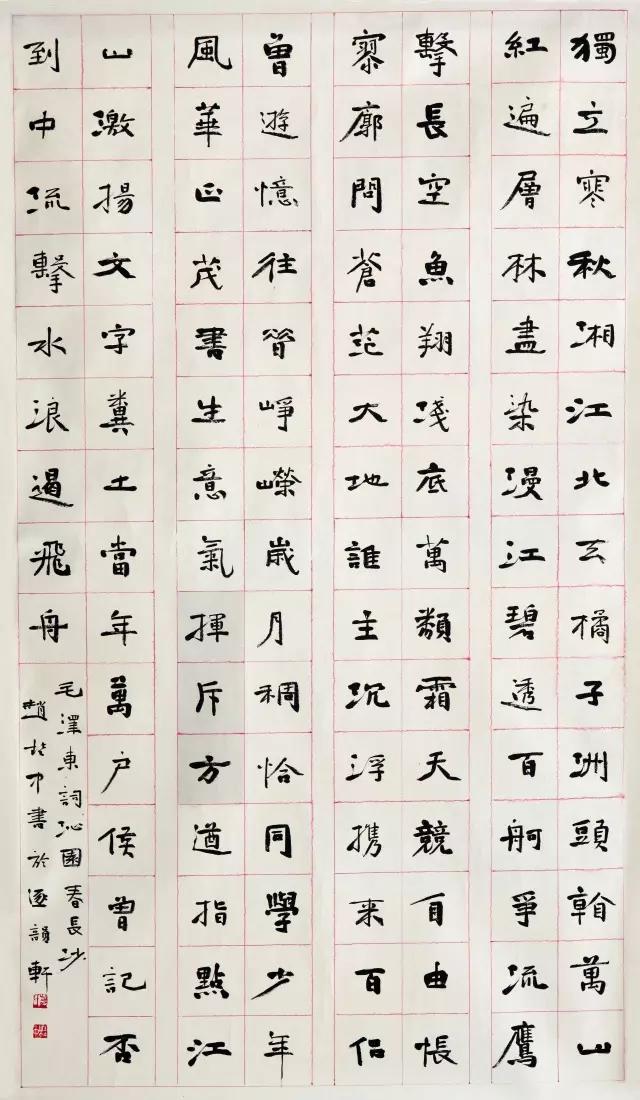 獨立寒秋湘江北去橘子洲頭看萬山
紅遍層林盡染漫江碧透百舸爭流鷹
擊長空魚翔淺底萬類霜天競自由悵
寥廓問蒼茫大地誰主沉浮携来百侣
曾遊憶往昔崢嶸歲月稠恰同學少年
風華正茂書生意氣揮斥方遒指點江
山激揚文字糞土當年萬户侯曾記否
到中流擊水浪遏飛舟
毛澤東詞沁園春長沙
趙書於逐韻軒